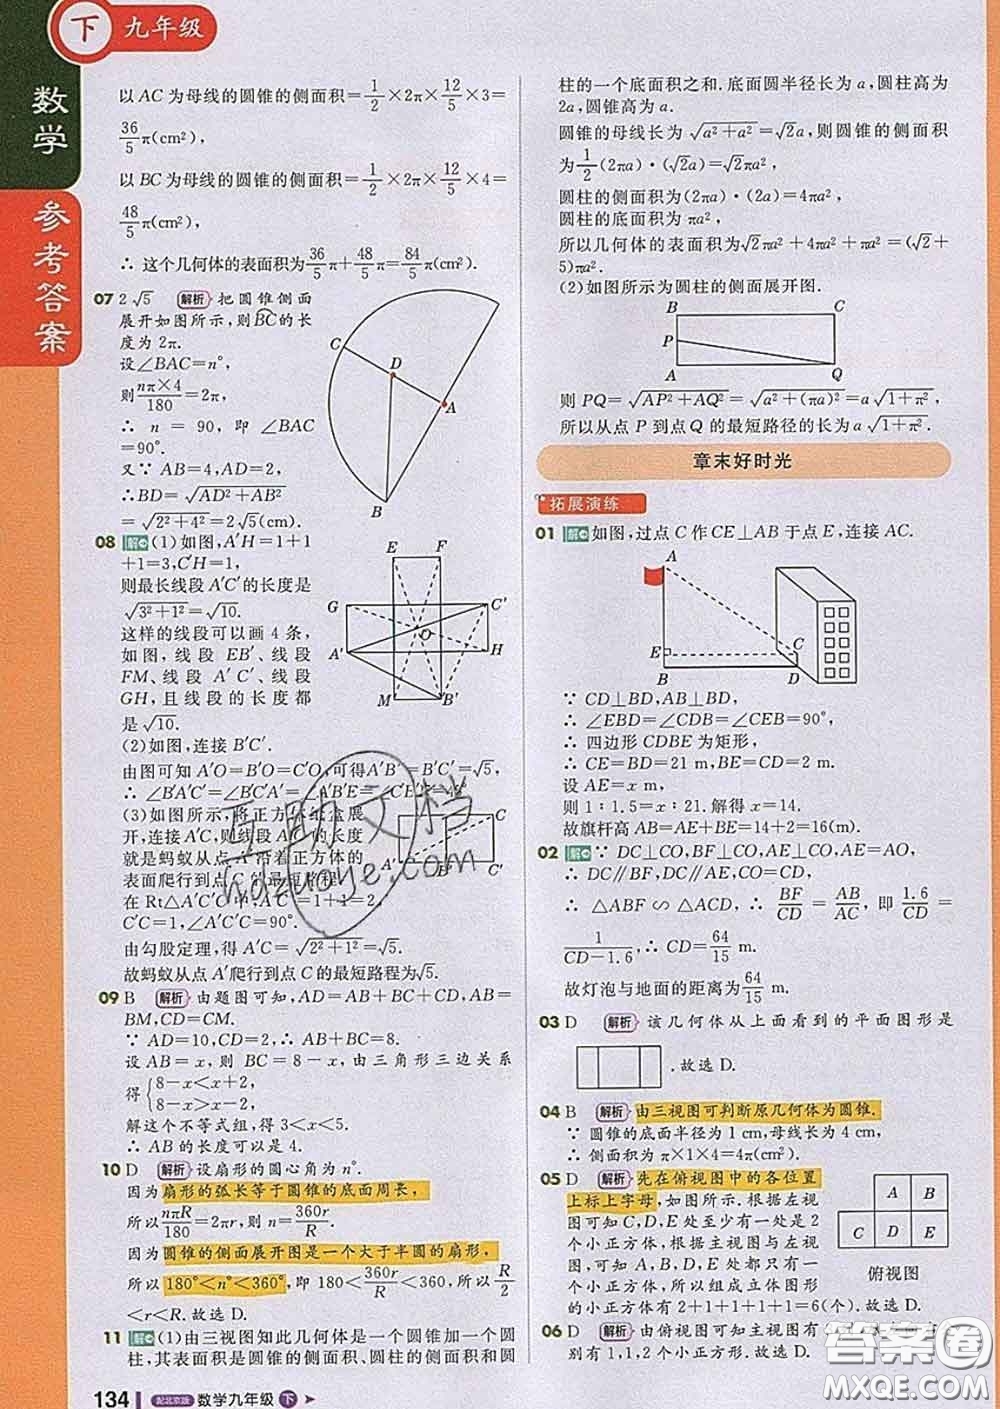 下 九年级
数学
参考答案
以 AC 为母线的圆锥的侧面积=1/2×2π×12/5×3=
36/5π(cm²),
以 BC 为母线的圆锥的侧面积=1/2×2π×12/5×4=
48/5π(cm²),
∴ 这个几何体的表面积为36/5π+48/5π=84/5π(cm²).
07 2√5 解析 把圆锥侧面
展开如图所示,则BC的长
度为 2π.
设∠BAC=n°,
则nπ×4/180=2π,
∴ n = 90, 即 ∠BAC
=90°.
又∵ AB=4,AD=2,
∴BD=√(AD²+AB²)
=√(2²+4²)=2√5(cm).
C
D
A
B
08 解 (1)如图,A′H=1+1
+1=3,C′H=1,
则最长线段 A′C′的长度是
√(3²+1²)=√10.
这样的线段可以画 4 条,
如图,线段 EB′、线段
FM、线段 A′C′、线段
GH,且线段的长度都
是√10.
E F
G C′
O
A′ H
M B′
(2)如图,连接 B′C′.
由图可知 A′O=B′O=C′O,可得A′B′=B′C′=√5,
∴ ∠B′A′C′=∠A′B′E=∠A′C′B′=45°.
(3)如图所示,将正方体纸盒展
开,连接 A′C,则线段 A′C 的长度
就是蚂蚁从点 A′沿着正方体的
表面爬行到点 C 的最短路程.
在 Rt△A′C′C 中,A′C′=1+1=2,
C′C=1,∠A′C′C=90°.
由勾股定理,得 A′C=√(2²+1²)=√5.
故蚂蚁从点 A′爬行到点 C 的最短路程为√5.
C
A′ C′
09 B 解析 由题图可知,AD=AB+BC+CD,AB=
BM,CD=CM.
∵ AD=10,CD=2,∴ AB+BC=8.
设 AB=x,则 BC=8-x,由三角形三边关系
得{8-x<x+2,
8-x>x-2,
解这个不等式组,得3<x<5.
∴ AB 的长度可以是 4.
10 D 解析 设扇形的圆心角为 n°.
因为扇形的弧长等于圆锥的底面周长,
所以nπR/180=2πr,则 n=360r/R.
因为圆锥的侧面展开图是一个大于半圆的扇形,
所以 180°<n°<360°,即 180<360r/R<360,所以R/2
<r<R.故选 D.
11 解 (1)由三视图知此几何体是一个圆锥加一个圆
柱,其表面积是圆锥的侧面积、圆柱的侧面积和圆
134 配北京版 数学九年级 下
柱的一个底面积之和.底面圆半径长为 a,圆柱高为
2a,圆锥高为 a.
圆锥的母线长为√(a²+a²)=√2a,则圆锥的侧面积
为1/2(2πa)·(√2a)=√2πa²,
圆柱的侧面积为(2πa)·(2a)=4πa²,
圆柱的底面积为 πa²,
所以几何体的表面积为√2πa²+4πa²+πa²=(√2+
5)πa².
(2)如图所示为圆柱的侧面展开图.
B C
P
A Q
则 PQ=√(AP²+AQ²)=√(a²+(πa)²)=a√(1+π²),
所以从点 P 到点 Q 的最短路径的长为 a√(1+π²).
章末好时光
拓展演练
01 解 如图,过点 C 作 CE⊥AB 于点 E,连接 AC.
A
E C
B D
∵ CD⊥BD,AB⊥BD,
∴ ∠EBD=∠CDB=∠CEB=90°,
∴ 四边形 CDBE 为矩形,
∴ CE=BD=21 m,BE=CD=2 m.
设 AE=x m,
则 1∶1.5=x∶21.解得 x=14.
故旗杆高 AB=AE+BE=14+2=16(m).
02 解 ∵ DC⊥CO,BF⊥CO,AE⊥CO,AE=AO,
∴ DC∥BF,DC=AC,
∴ △ABF∽△ACD,∴ BF/CD=AB/AC, 即 1.6/CD=
1/(CD-1.6),∴ CD=64/15 m.
故灯泡与地面的距离为64/15 m.
03 D 解析 该几何体从上面看到的平面图形是
.故选 D.
04 B 解析 由三视图可判断原几何体为圆锥.
∵ 圆锥的底面半径为 1 cm,母线长为 4 cm,
∴ 侧面积为 π×1×4=4π(cm²).
05 D 解析 先在俯视图中的各位置
上标上字母,如图所示.根据左视
图可知 C,D,E 处至少有一处是 2
个小正方体,根据主视图与左视
图可知 A,B,D,E 处都只有一个
小正方体,所以组成立体图形的
小正方体有 2+1+1+1+1=6(个).故选 D.
A B
C D E
俯视图
06 D 解析 由俯视图可知主视图有
别有 1,1,2 个小正方形.故选 D.
互助文档
hdzuoye.com
答案圈
MXQE.COM